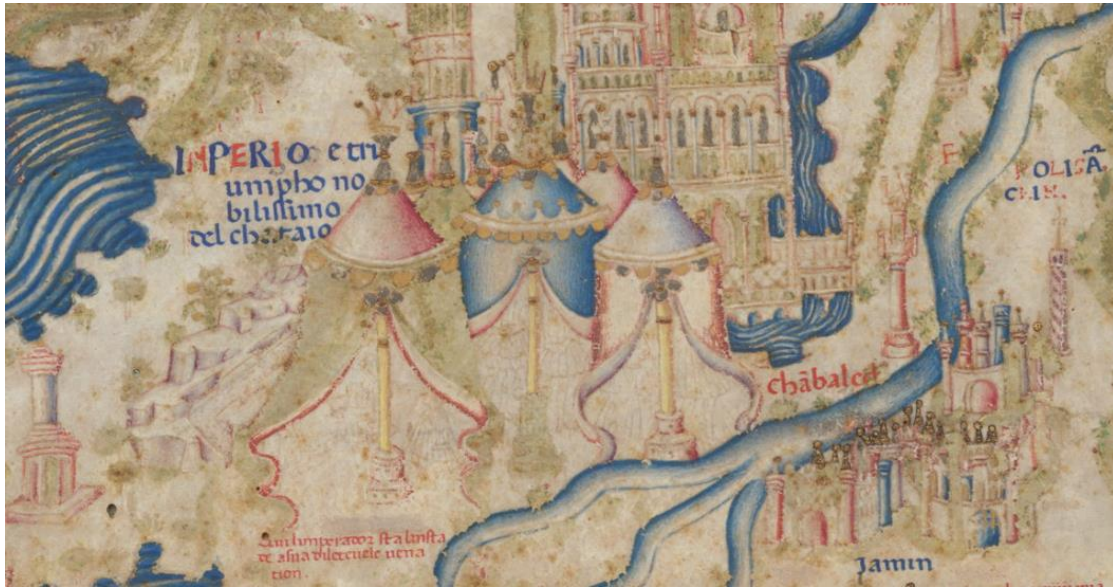 IMPERIO e tri
umpho no
bilissimo
del chataio
POLISĀ
CHIN.
Chābalech
Qui limperador sta linsta
de asua dilecevele vena
tion.
Jamin